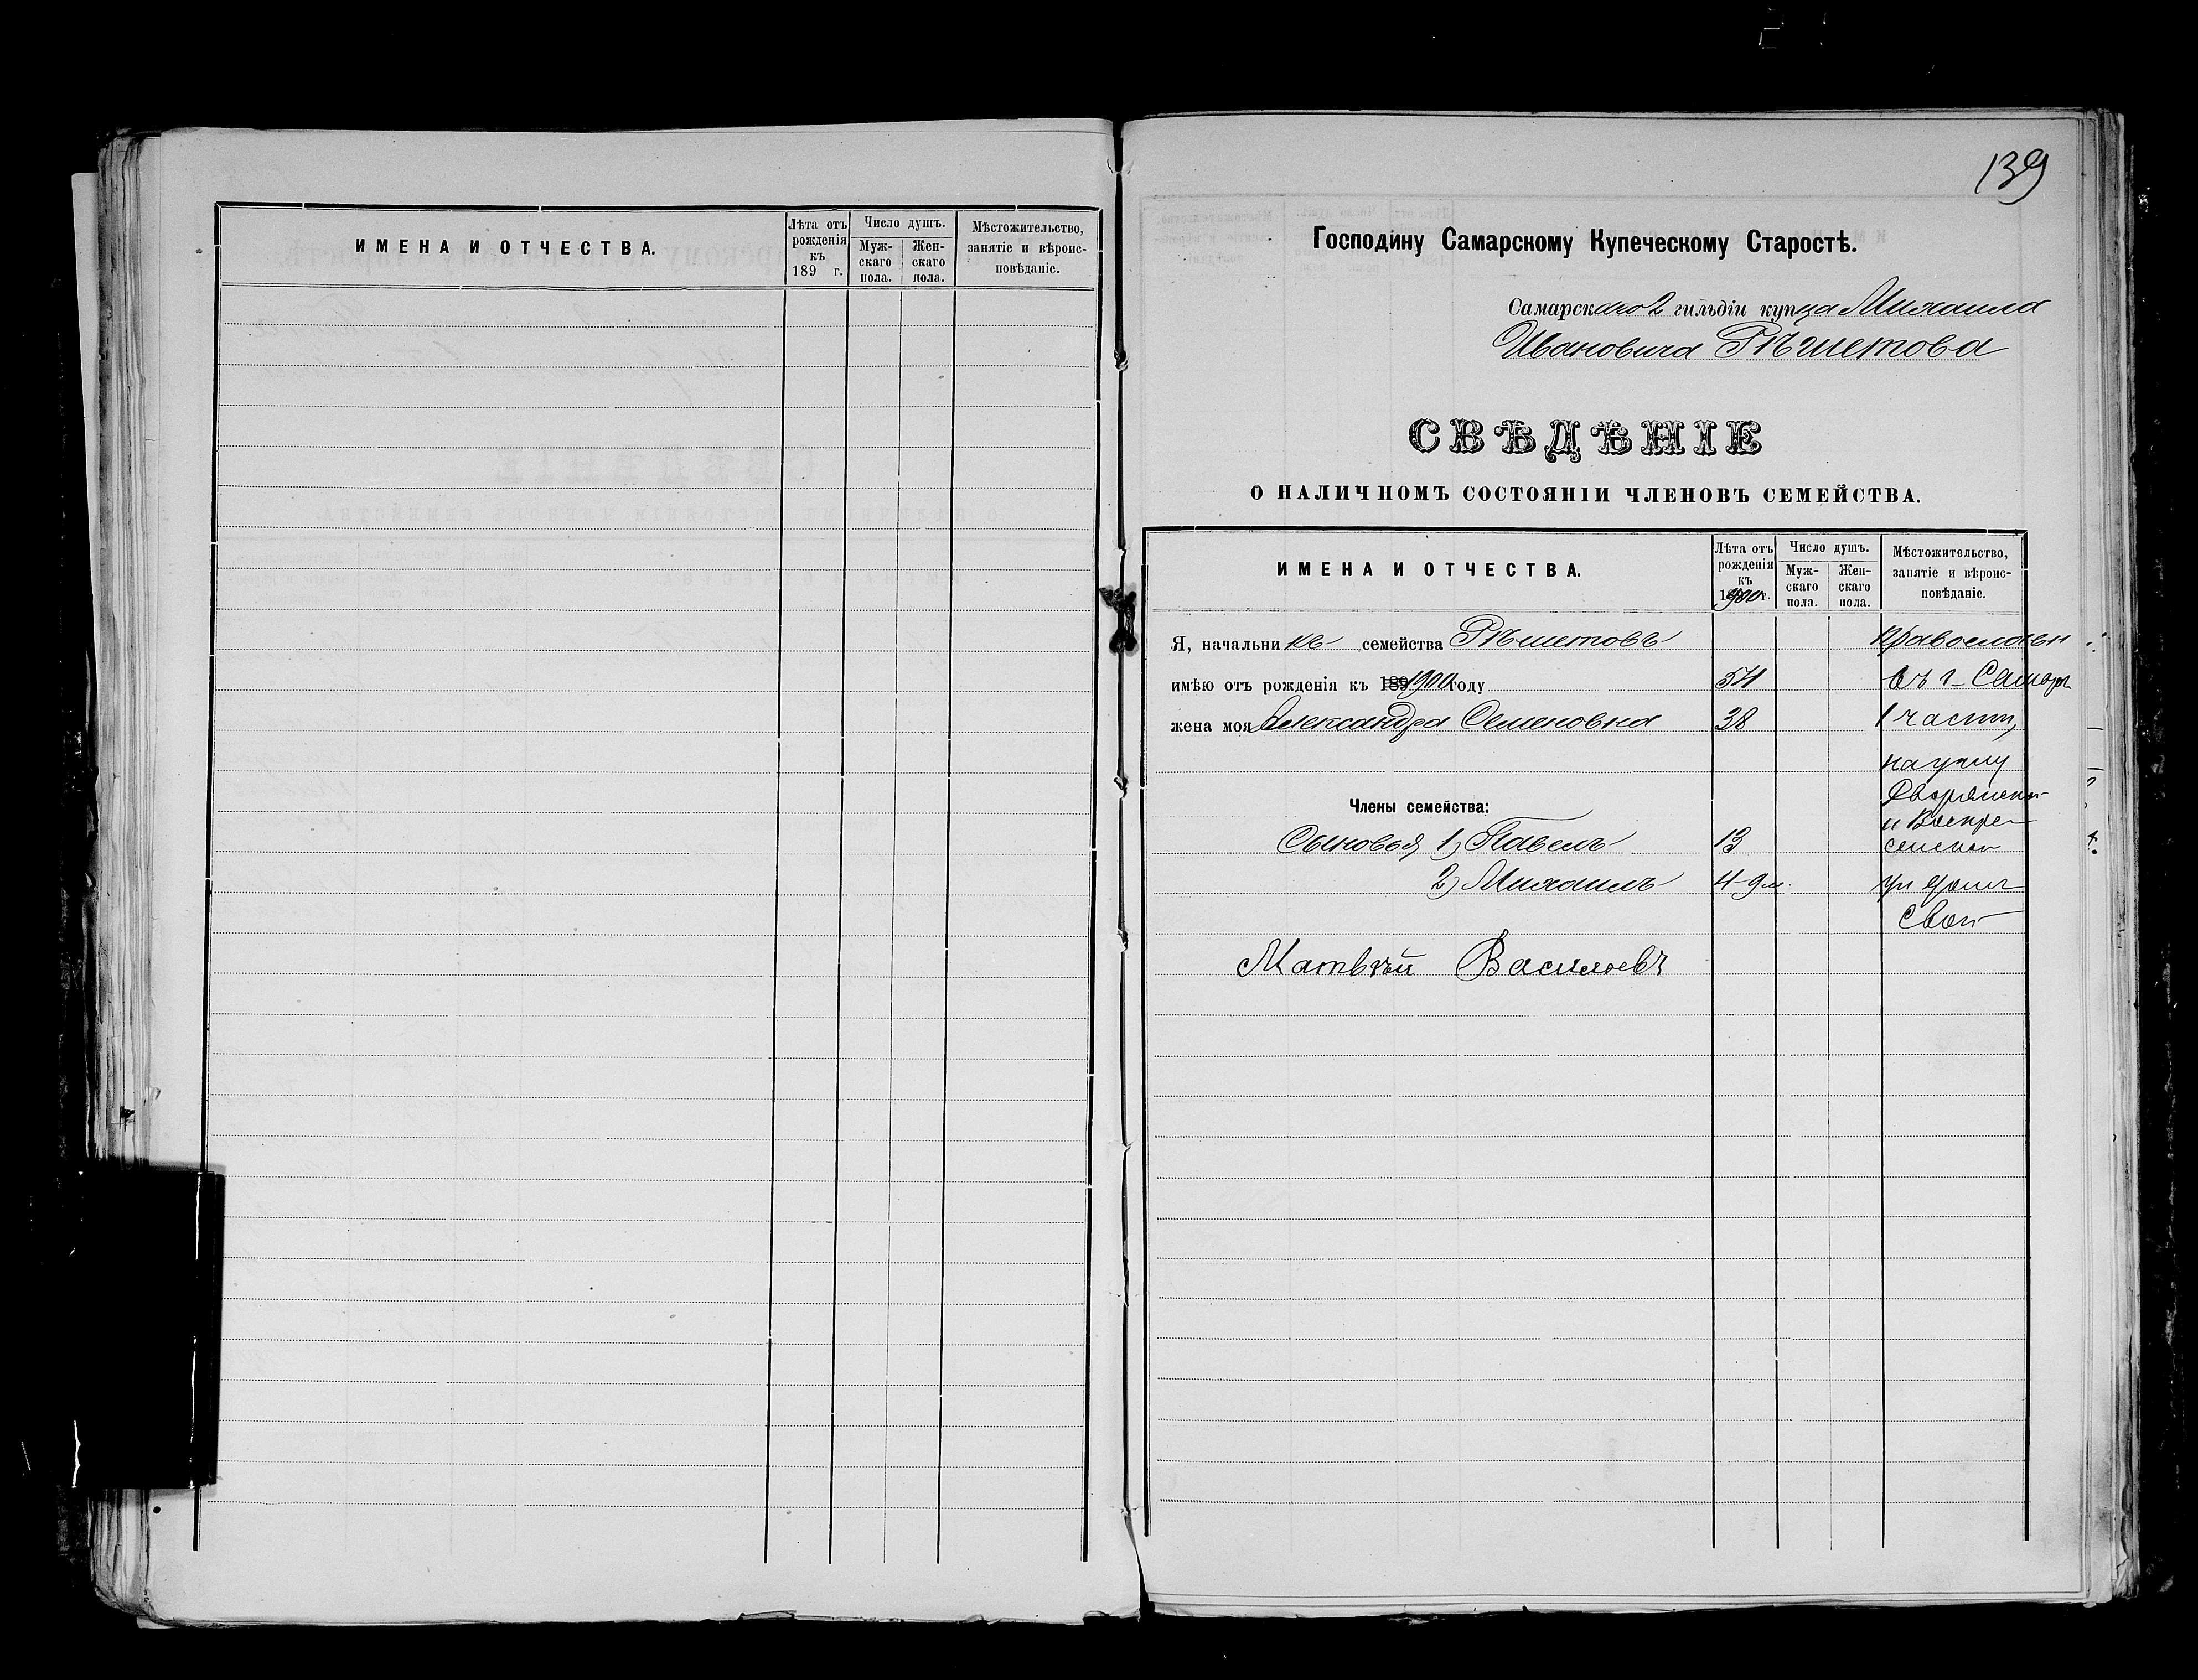 ИМЕНА И ОТЧЕСТВА.
Лѣта отъ рожденія къ 189 г.
Число душъ.
Мужскаго пола.
Женскаго пола.
Мѣстожительство, занятіе и вѣроисповѣданіе.
139
Господину Самарскому Купеческому Старостѣ.
Самарскаго 2 гильдіи купца Михаила
Ивановича Рѣшетова
СВѢДѢНІЕ
О НАЛИЧНОМЪ СОСТОЯНІИ ЧЛЕНОВЪ СЕМЕЙСТВА.
ИМЕНА И ОТЧЕСТВА.
Лѣта отъ рожденія къ 1900 г.
Число душъ.
Мужскаго пола.
Женскаго пола.
Мѣстожительство, занятіе и вѣроисповѣданіе.
Я, начальникъ семейства Рѣшетовъ православн
имѣю отъ рожденія къ 189 1900 году 54 въ г. Самарѣ
жена моя Александра Семеновна 38 1 части,
на углу
Дворянск
Члены семейства:
и Воскре-
Сыновья 1) Павелъ 13 сенской
2) Михаилъ 4-9 м. ул домъ
свой
Матвѣй Васильевъ